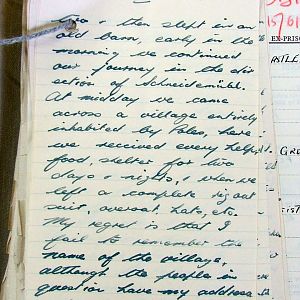 & then slept in an
old barn, early in the
morning we continued
our journey in the dir
ection of Schneidemühl.
At midday we came
across a village entirely
inhabited by Poles, here
we received every help,
food, shelter for two
days & nights, & when we
left a complete rig out
suit, overcoat, hats, etc.
My regret is that I
fail to remember the
name of the village,
although the people in
question have my address
EX-PRIS